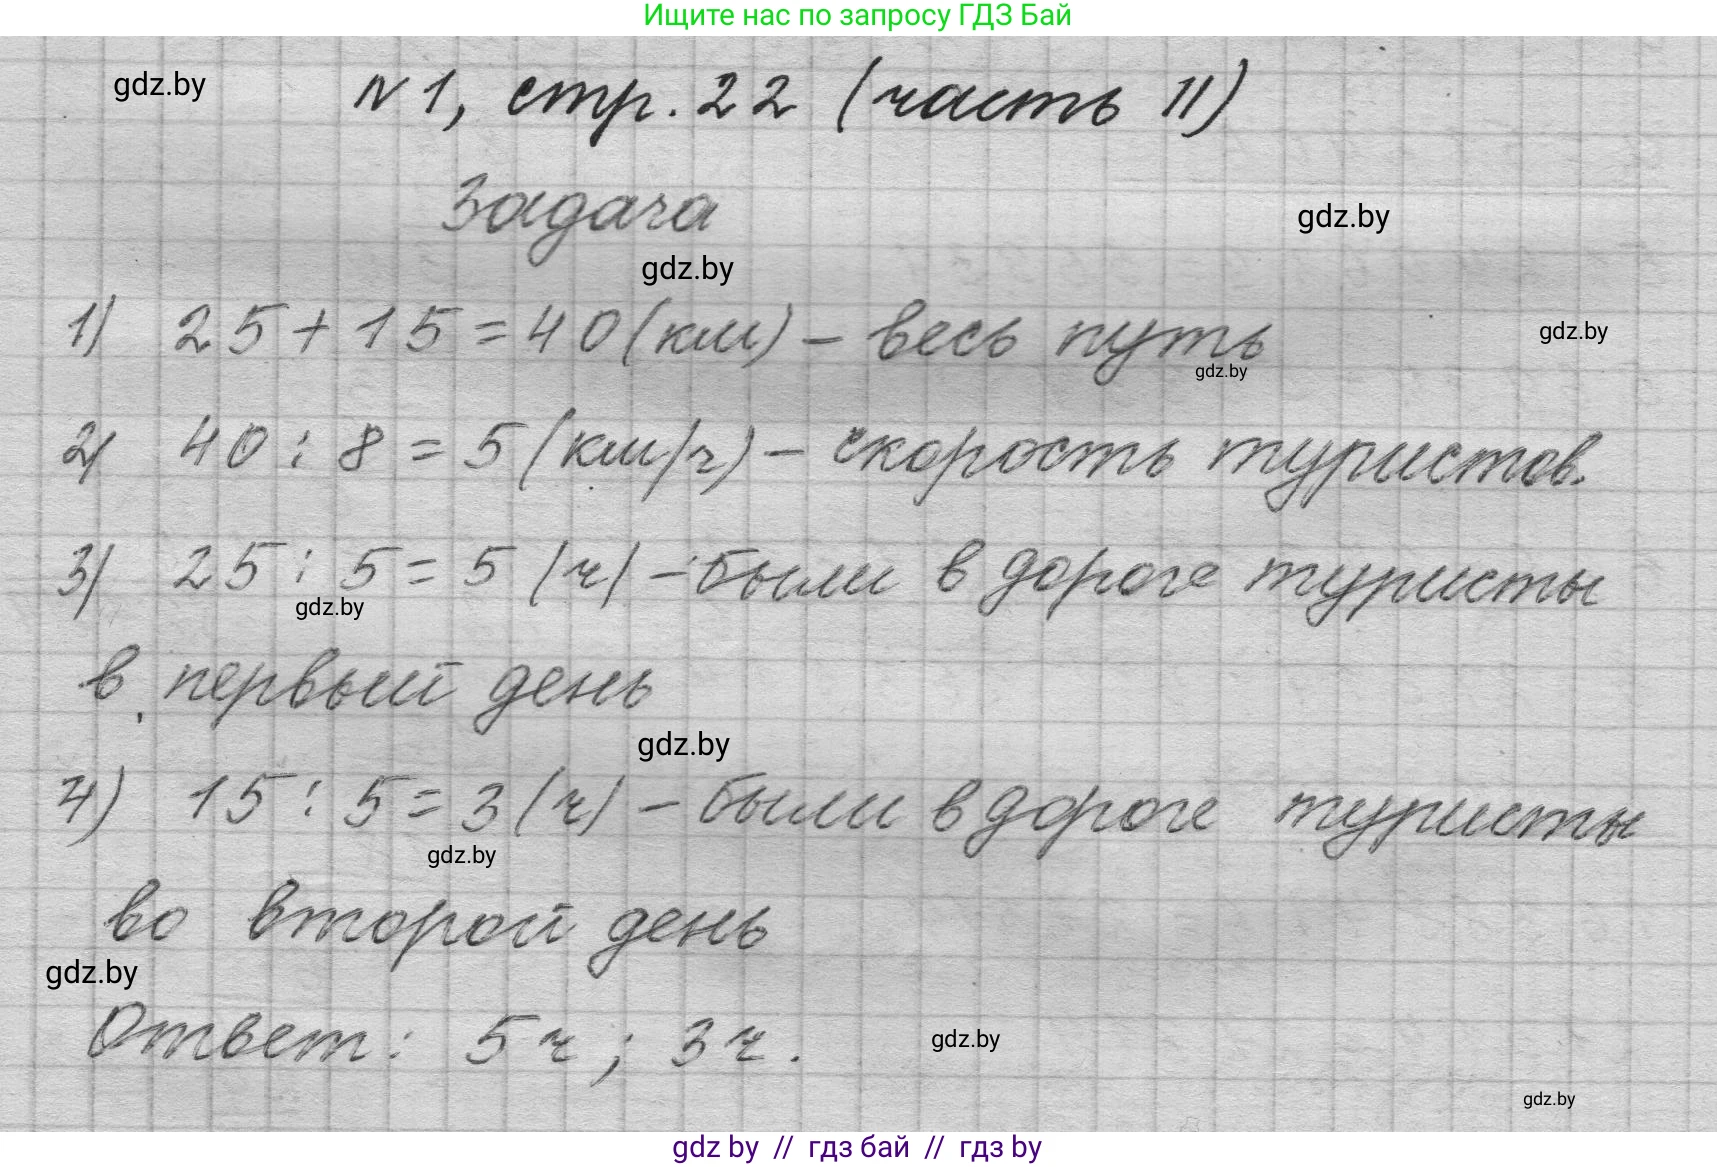 Ищите нас по запросу ГДЗ Бай
gdz.by
№1, стр. 22 (часть II)
Задача
gdz.by
gdz.by
1) 25 + 15 = 40 (км) – весь путь
gdz.by
gdz.by
2) 40 : 8 = 5 (км/ч) – скорость туристов.
3) 25 : 5 = 5 (ч) – были в дороге туристы
gdz.by
в первый день
gdz.by
4) 15 : 5 = 3 (ч) – были в дороге туристы
gdz.by
во второй день
gdz.by
Ответ: 5 ч ; 3 ч.
gdz.by
gdz.by
gdz by // гдз бай // гдз by